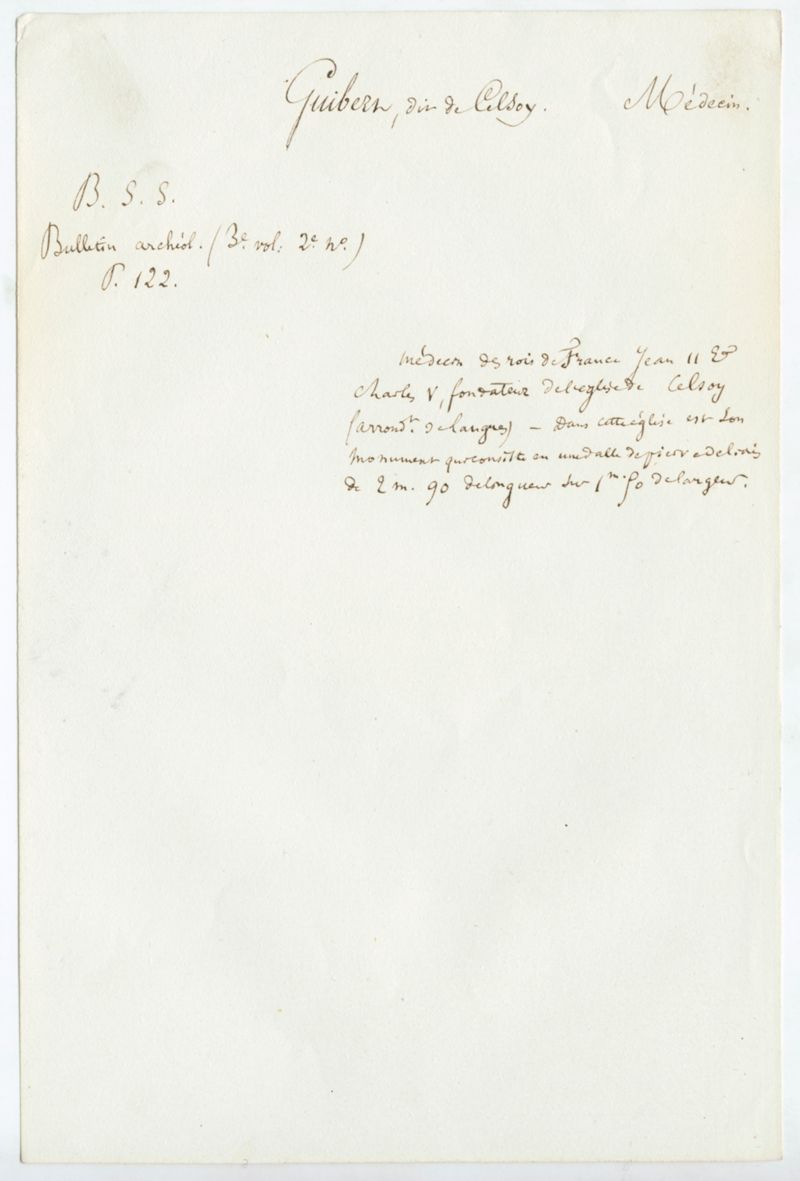 Guibert, dit de Celsoy. Médecin.
B. S. S.
Bulletin archéol. (3e vol: 2e no.)
P. 122.
Médecin des rois de France Jean II &
Charles V, fondateur de l'eglise de Celsoy
(arrondt. de langres) — Dans cette église est son
monument qui consiste en une dalle de pierre de liais
de 2 m. 90 de longueur sur 1m. 50 de largeur.